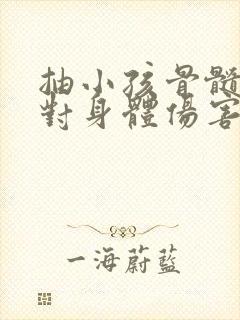 抽小孩骨髓
對身體傷害
一海蔚藍